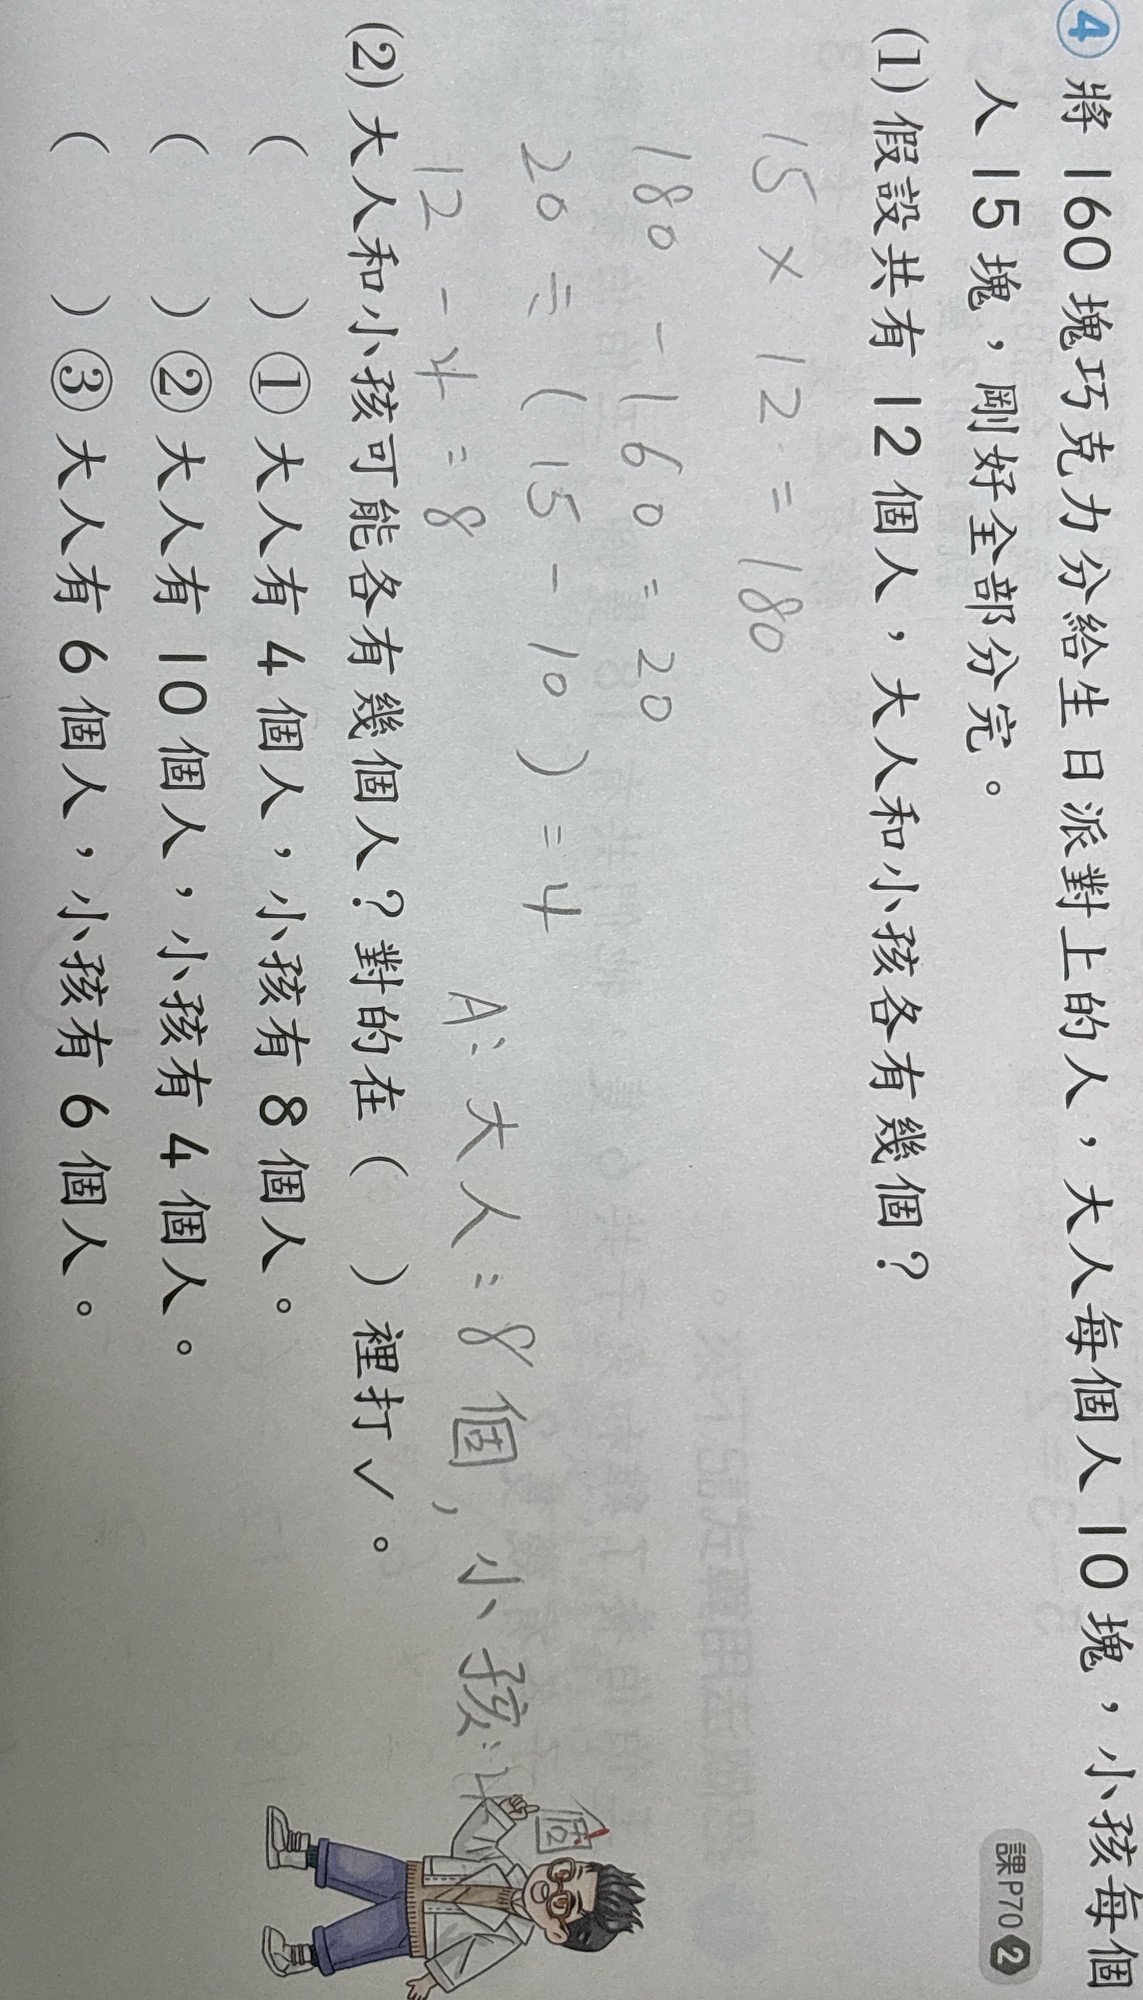 ④ 將160塊巧克力分給生日派對上的人，大人每個人10塊，小孩每個
人15塊，剛好全部分完。
課P70 2
(1) 假設共有12個人，大人和小孩各有幾個？
15 × 12 = 180
180 - 160 = 20
20 ÷ (15 - 10) = 4
12 - 4 = 8
A：大人：8個，小孩：4個
(2) 大人和小孩可能各有幾個人？對的在（ ）裡打✓。
（ ）① 大人有4個人，小孩有8個人。
（ ）② 大人有10個人，小孩有4個人。
（ ）③ 大人有6個人，小孩有6個人。